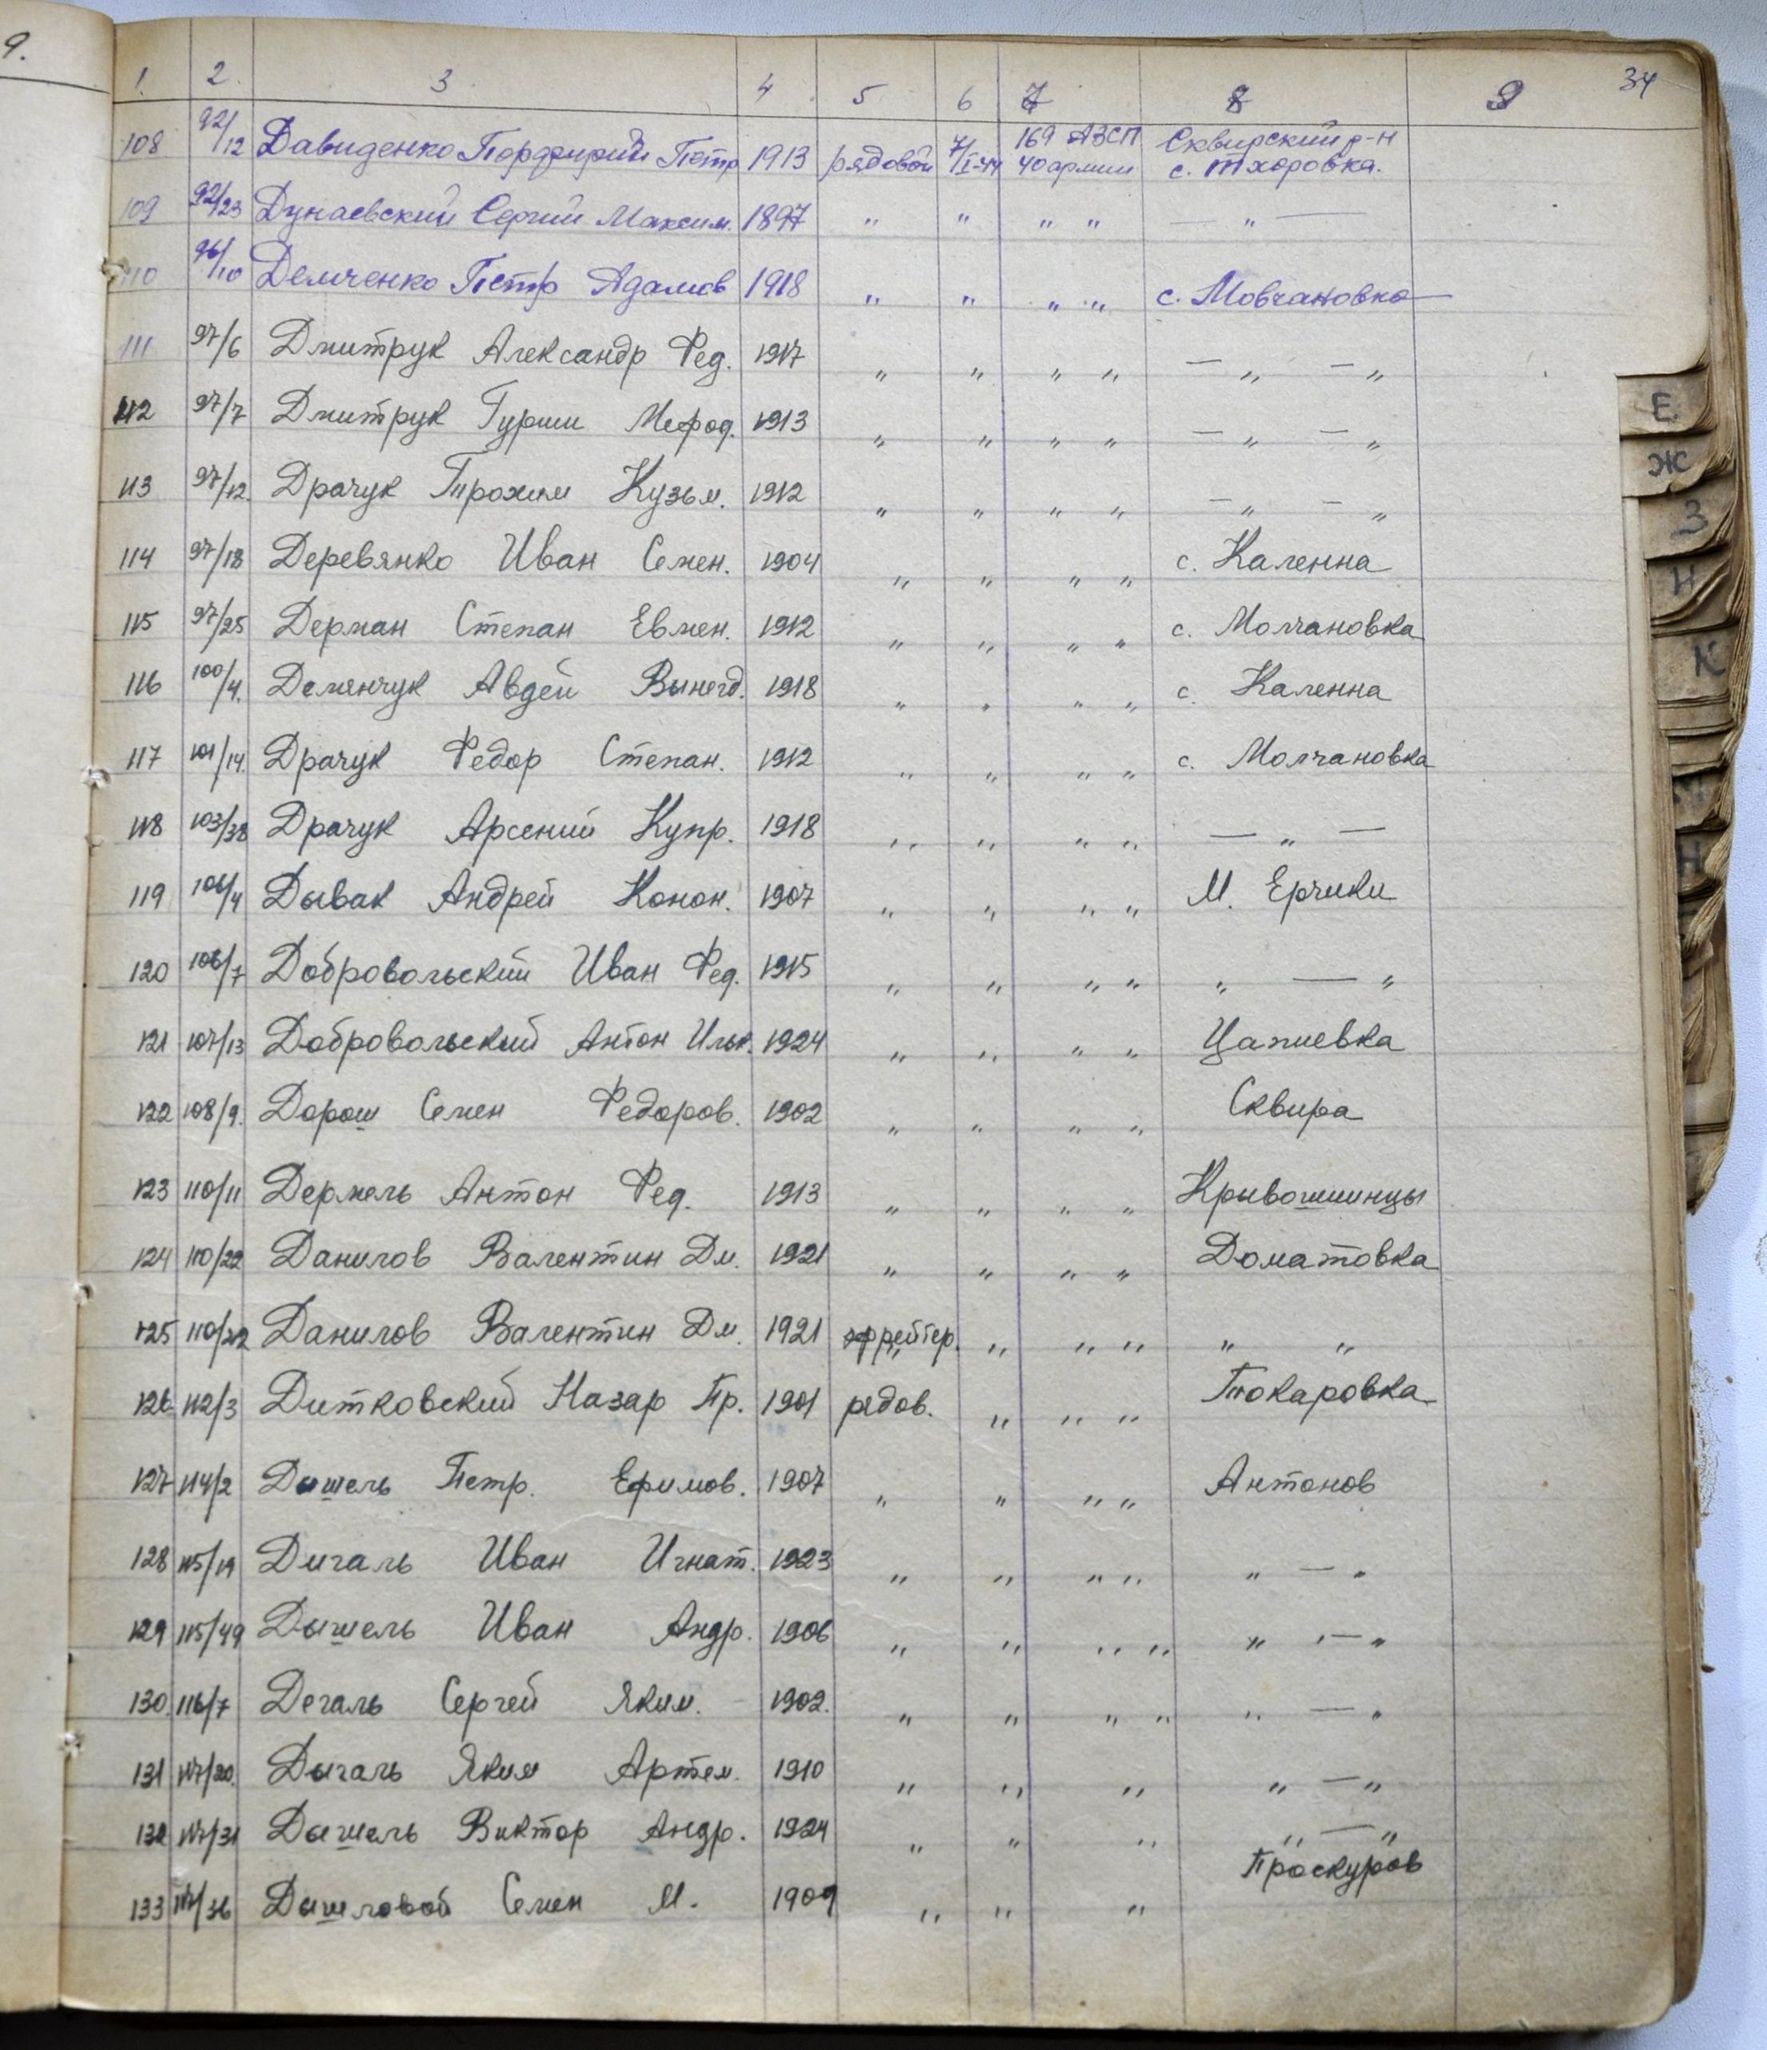 9.
1. 2. 3 4 5 6 7 8 9 34
108 92/12 Давиденко Порфирий Петр 1913 рядовой 7/I-44 169 АЗСП 40 армии Сквирский р-н с. Тхоровка.
109 92/23 Дунаевский Сергий Максим. 1897 " " " " — " —
110 96/10 Демченко Петр Адамов 1918 " " " " с. Мовчановка
111 97/6 Дмитрук Александр Фед. 1917 " " " " — " — "
112 97/7 Дмитрук Гурии Мефод. 1913 " " " " — " — "
113 97/12 Драчук Трохим Кузьм. 1912 " " " " — " — "
114 97/18 Деревянко Иван Семен. 1904 " " " " с. Каленна
115 97/25 Дерман Степан Евмен. 1912 " " " " с. Молчановка
116 100/4. Деменчук Авдей 1918 " " " " с. Каленна
117 101/14. Драчук Федор Степан. 1912 " " " " с. Молчановка
118 103/38 Драчук Арсений Купр. 1918 " " " " — " —
119 106/4 Дывак Андрей Конон. 1907 " " " " М. Ерчики
120 106/7 Добровольский Иван Фед. 1915 " " " " " — "
121 107/13 Добровольский Антон Ильк. 1924 " " " " Цапиевка
122 108/9. Дорош Семен Федоров. 1902 " " " " Сквира
123 110/11 Дермель Антон Фед. 1913 " " " " Кривошиинцы
124 110/22 Данилов Валентин Дм. 1921 " " " " Доматовка
125 110/22 Данилов Валентин Дм. 1921 эфрейтер. " " " " "
126 112/3 Дитковский Назар Пр. 1901 рядов. " " " Токаровка
127 114/2 Дышель Петр. Ефимов. 1907 " " " " Антонов
128 115/19 Дигаль Иван Игнат. 1923 " " " " " — "
129 115/49 Дышель Иван Андр. 1906 " " " " " — "
130. 116/7 Дегаль Сергей Яким. 1902. " " " " " — "
131 117/20. Дыгаль Яким Артем. 1910 " " " " — "
132 117/31 Дышель Виктор Андр. 1924 " " " " — "
133 117/36 Дышловой Семен М. 1909 " " " Проскуров
Е.
Ж
З
И
К
Н